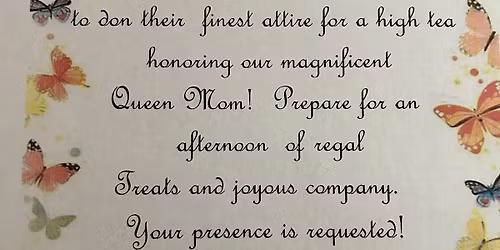 to don their finest attire for a high tea
honoring our magnificent
Queen Mom! Prepare for an
afternoon of regal
Treats and joyous company.
Your presence is requested!